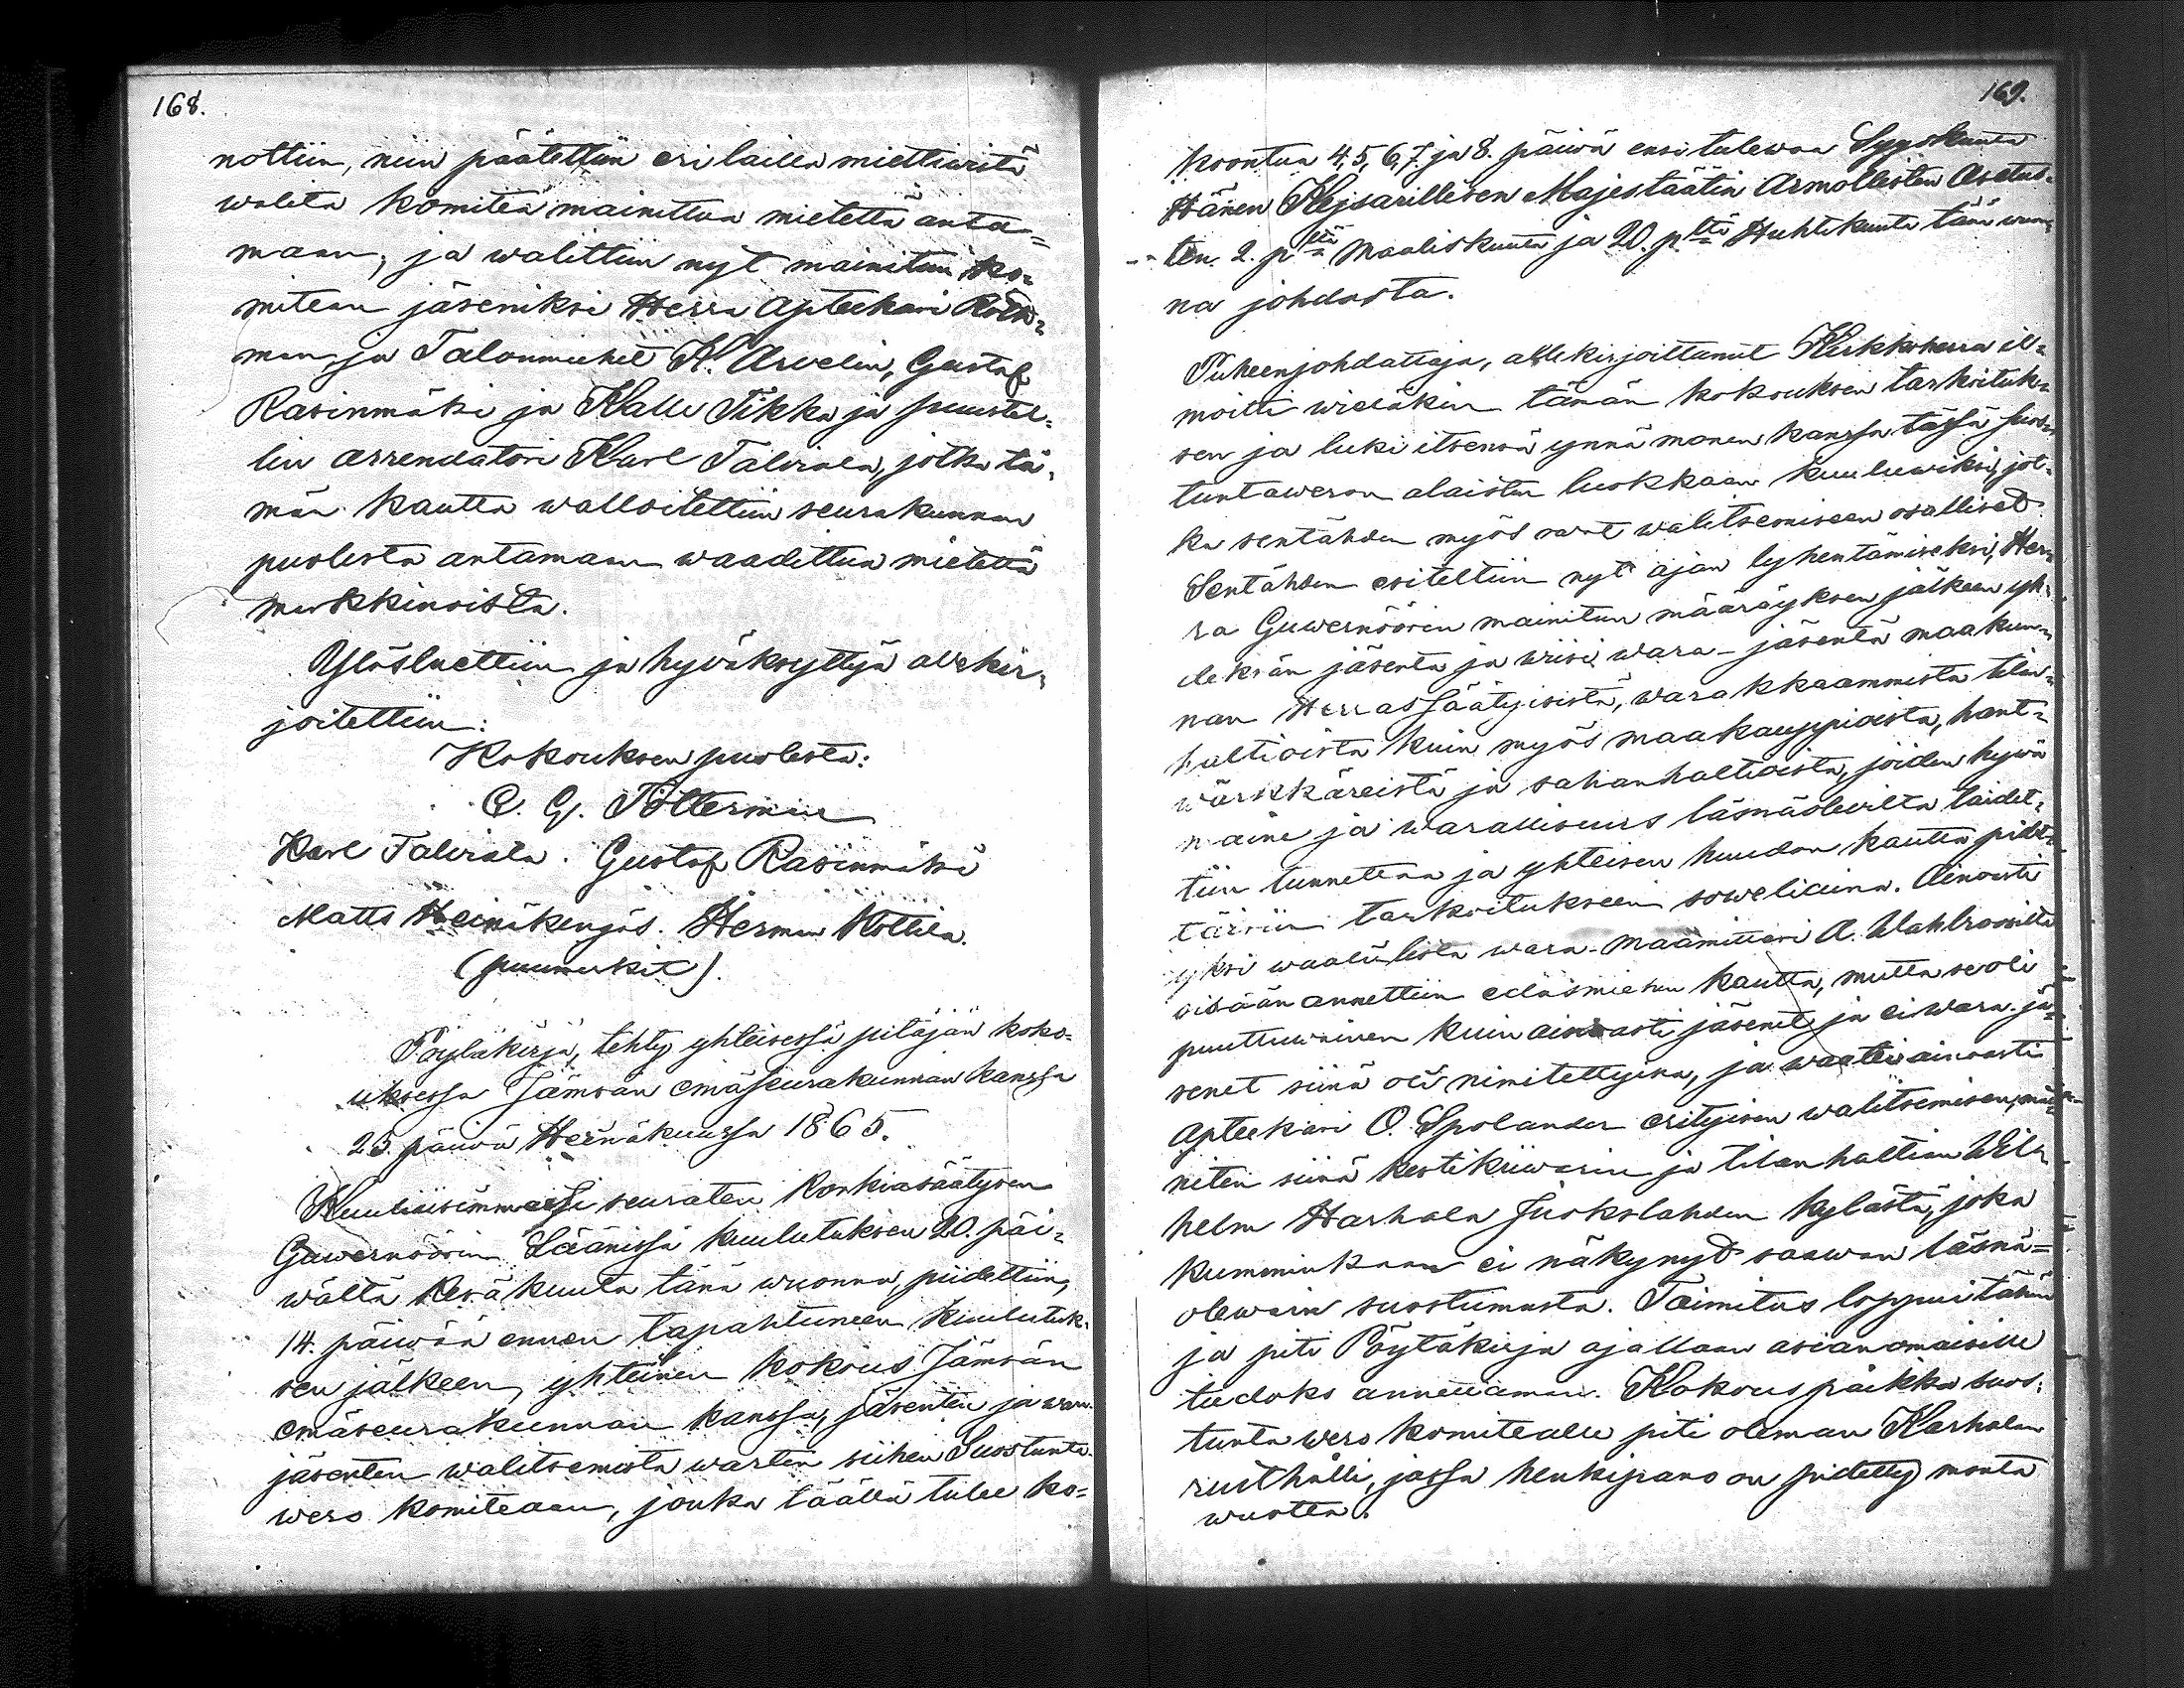 168.
nottiin, niin päätettiin eri lailla miettiwistä
walita komitea mainittua mietettä anta=
maan, ja walittiin nyt mainitun ko=
mitean jäseniksi Herra Apteekari
man, ja Talonmiehet K. Arvelin, Gustaf
Rasinmäki ja Kalle Tikka ja puustel=
lin arrendatori Karl Talviala, jotka tä=
män kautta walloitettiin seurakunnan
puolesta antamaan waadittua mietettä
markkinoista.
Ylösluettiin ja hyväksyttyä allekir=
joitettiin:
Kokouksen puolesta:
C. G. Tötterman
Karl Talviala. Gustaf Rasinmäki
Matts Heinäkenjäs. Herman Kottila.
(puumerkit).
Pöytäkirja, tehty yhteisessä pitäjän koko=
uksessa Jämsän emäseurakunnan kanssa
23. päivä Heinäkuussa 1865.
Kuuliaisimmasti seuraten Korkiasäätysen
Guwernöörin Läänissä kuulutuksen 20. päi=
wältä Kesäkuuta tänä wuonna, pidettiin,
14. päiwää ennen tapahtuneen kuulutuk=
sen jälkeen, yhteinen kokous Jämsän
emäseurakunnan kanssa, jäsenten ja wara-
jäsenten walitsemista warten siihen Suostunta-
wero komiteaan, jonka täällä tulee ko=
169.
koontua 4, 5, 6, 7. ja 8. päiwä ensitulewaa Syyskuuta
Hänen Kejsarillisen Majestäätin Armollisten Asetus=
ten 2. p:ltä Maaliskuuta ja 20. p:ltä Huhtikuuta tänä wuon=
na johdosta.
Puheenjohdattaja, allekirjoittanut Kirkkoherra il=
moitti wieläkin tämän kokouksen tarkoituk=
sen ja luki itsensä ynnä monen kanssa tässä suos=
tuntaweron alaisten luokkaan kuuluwiksi, jot=
ka sentähden myös owat walitsemiseen osalliset.
Sentähden esiteltiin nyt ajan lyhentämiseksi, Her=
ra Guwernöörin mainitun määräyksen jälkeen yh=
deksän jäsentä ja wiisi wara-jäsentä maakun=
nan Herrassäätyisistä, warakkaammista tilan=
haltioista kuin myös maakauppioista, hant=
wärkkäreistä ja sahanhaltioista, joiden hywä
maine ja warallisuus läsnäolewilta taidet=
tiin tunnettaa ja yhteisen huudon kautta pidet=
täisiin tarkoitukseen soweliaina. Ainoasti
yksi waalilista wara-maamittari A. Wahlroosilta
sisään annettiin edusmiehen kautta, mutta se oli
puuttuwainen kuin ainoasti jäsenet ja ei wara-jä=
senet siinä oli nimitettyinä, ja waati ainoasti
Apteekari O. Spolander erityisen walitsemisen,
niten siinä kestikiiwarin ja tilanhaltian Wil=
helm Harhala Juokslahden kylästä, joka
kumminkaan ei näkynyt saawan läsnä=
olewain suostumusta. Toimitus loppui tähän
ja piti Pöytäkirja ajallaan asianomaisille
tiedoks annettaman. Kokouspaikka suos=
tunta wero komitealle piti oleman Karholan
rusthålli, jossa henkipano on pidetty monta
wuotta.